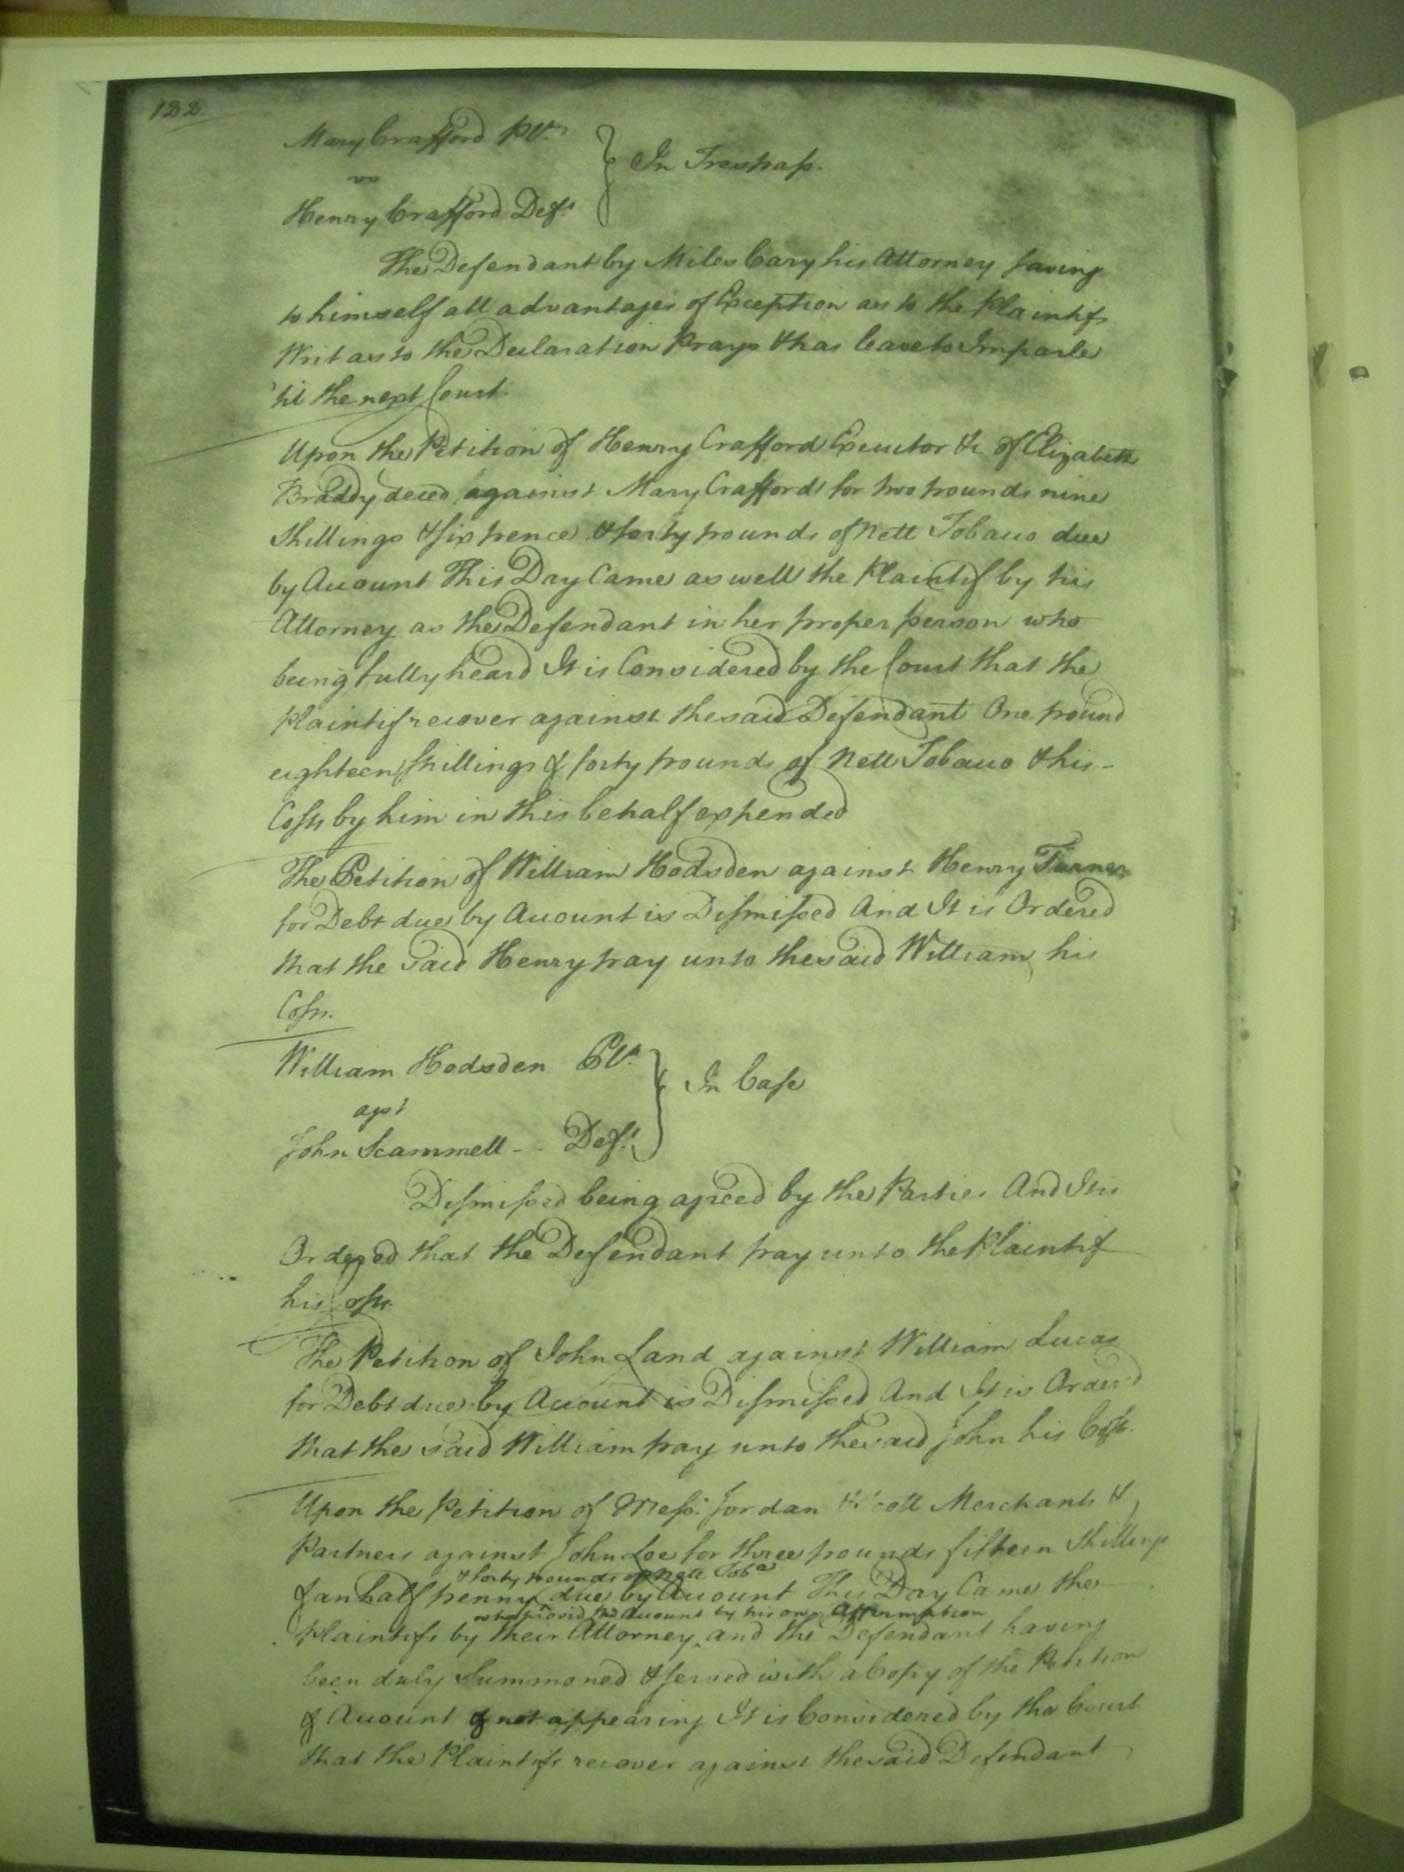 122.
Mary Crafford Plt.
vs
Henry Crafford Deft.
In Trespass.
The Defendant by Miles Cary his Attorney saving
to himself all advantages of Exception as to the Plaintifs
Writ as to the Declaration Prays & has leave to Imparle
'til the next Court.
Upon the Petition of Henry Crafford Executor &c of Elizabeth
Braddy deced against Mary Crafford for two pounds nine
shillings & six pence & forty pounds of Nett Tobacco due
by Account This Day Came as well the Plaintif by his
Attorney as the Defendant in her proper person who
being fully heard It is Considered by the Court that the
Plaintif recover against the said Defendant One pound
eighteen shillings & forty pounds of Nett Tobacco & his -
Costs by him in this behalf expended
The Petition of William Hodsden against Henry Turner
for Debt due by Account is Dismissed And It is Ordered
that the said Henry pay unto the said William his
Costs.
William Hodsden Plt.
agst
John Scammell - . Deft.
In Case
Dismissed being agreed by the Parties And It is
Ordered that the Defendant pay unto the Plaintif
his Costs.
The Petition of John Land against William Lucas
for Debt due by Account is Dismissed And It is Ordered
that the said William pay unto the said John his Costs.
Upon the Petition of Mess: Jordan & Scott Merchants &
Partners against John Loe for three pounds fifteen Shillings
& forty pounds of Nett Tobo
& an half penny due by Account This Day Came the
who proved the Account by his own Affirmation
Plaintifs by their Attorney and the Defendant having
been duly Summoned & served with a Copy of the Petition
& Account & not appearing It is Considered by the Court
that the Plaintifs recover against the said Defendant